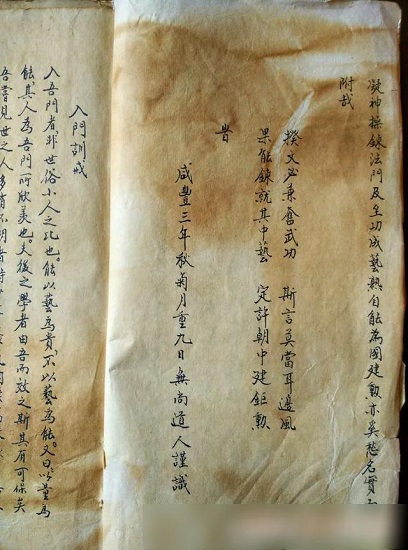 凝神操鍊法門及至功成藝熟自能為國建勳亦奚愁名實不
附哉
揆文必兼奮武功　斯言莫當耳邊風
果能鍊就其中藝　定許朝中建鉅勳
旹
咸豐三年秋菊月重九日無尚道人謹識
入門訓戒
入吾門者非世俗小人之比也能以藝為貴不以藝為能又曰以量為
能其人為吾門所欣羨也夫後之學者由吾而效之斯其有可保矣
吾嘗見世之人多有不明者